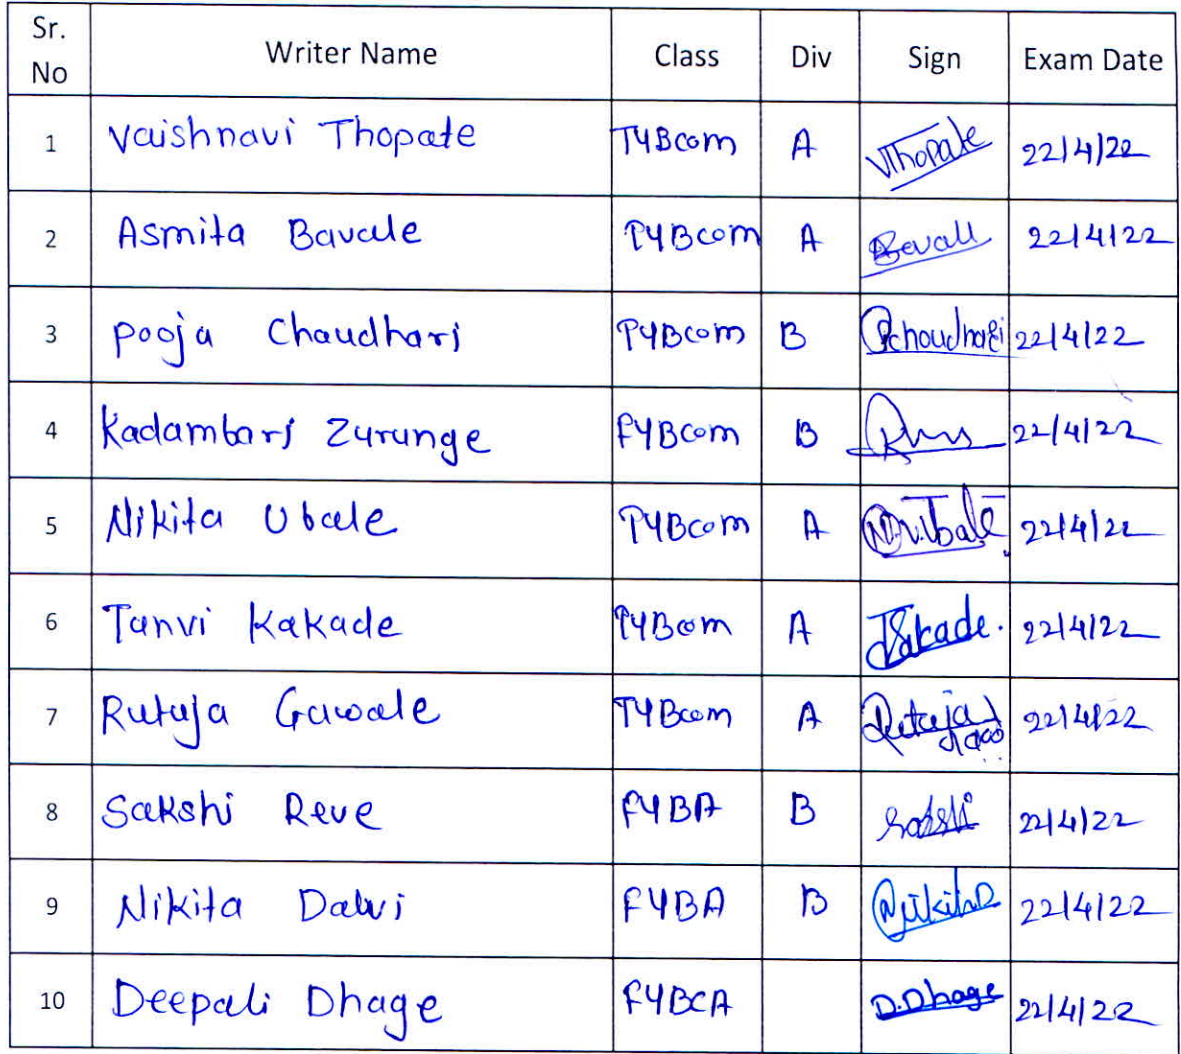 Sr. No Writer Name Class Div Sign Exam Date
1 Vaishnavi Thopate TYBcom A VThopate 22/4/22
2 Asmita Bavale TYBcom A Bavale 22/4/22
3 Pooja Chaudhari TYBcom B PChoudhari 22/4/22
4 Kadambari Zurunge FYBcom B 22/4/22
5 Nikita Ubale TYBcom A 22/4/22
6 Tanvi Kakade TYBcom A 22/4/22
7 Rutuja Gawale TYBcom A Rutuja 22/4/22
8 Sakshi Reve FYBA B Sakshi 22/4/22
9 Nikita Dalvi FYBA B NikitaD 22/4/22
10 Deepali Dhage FYBCA D.Dhage 22/4/22